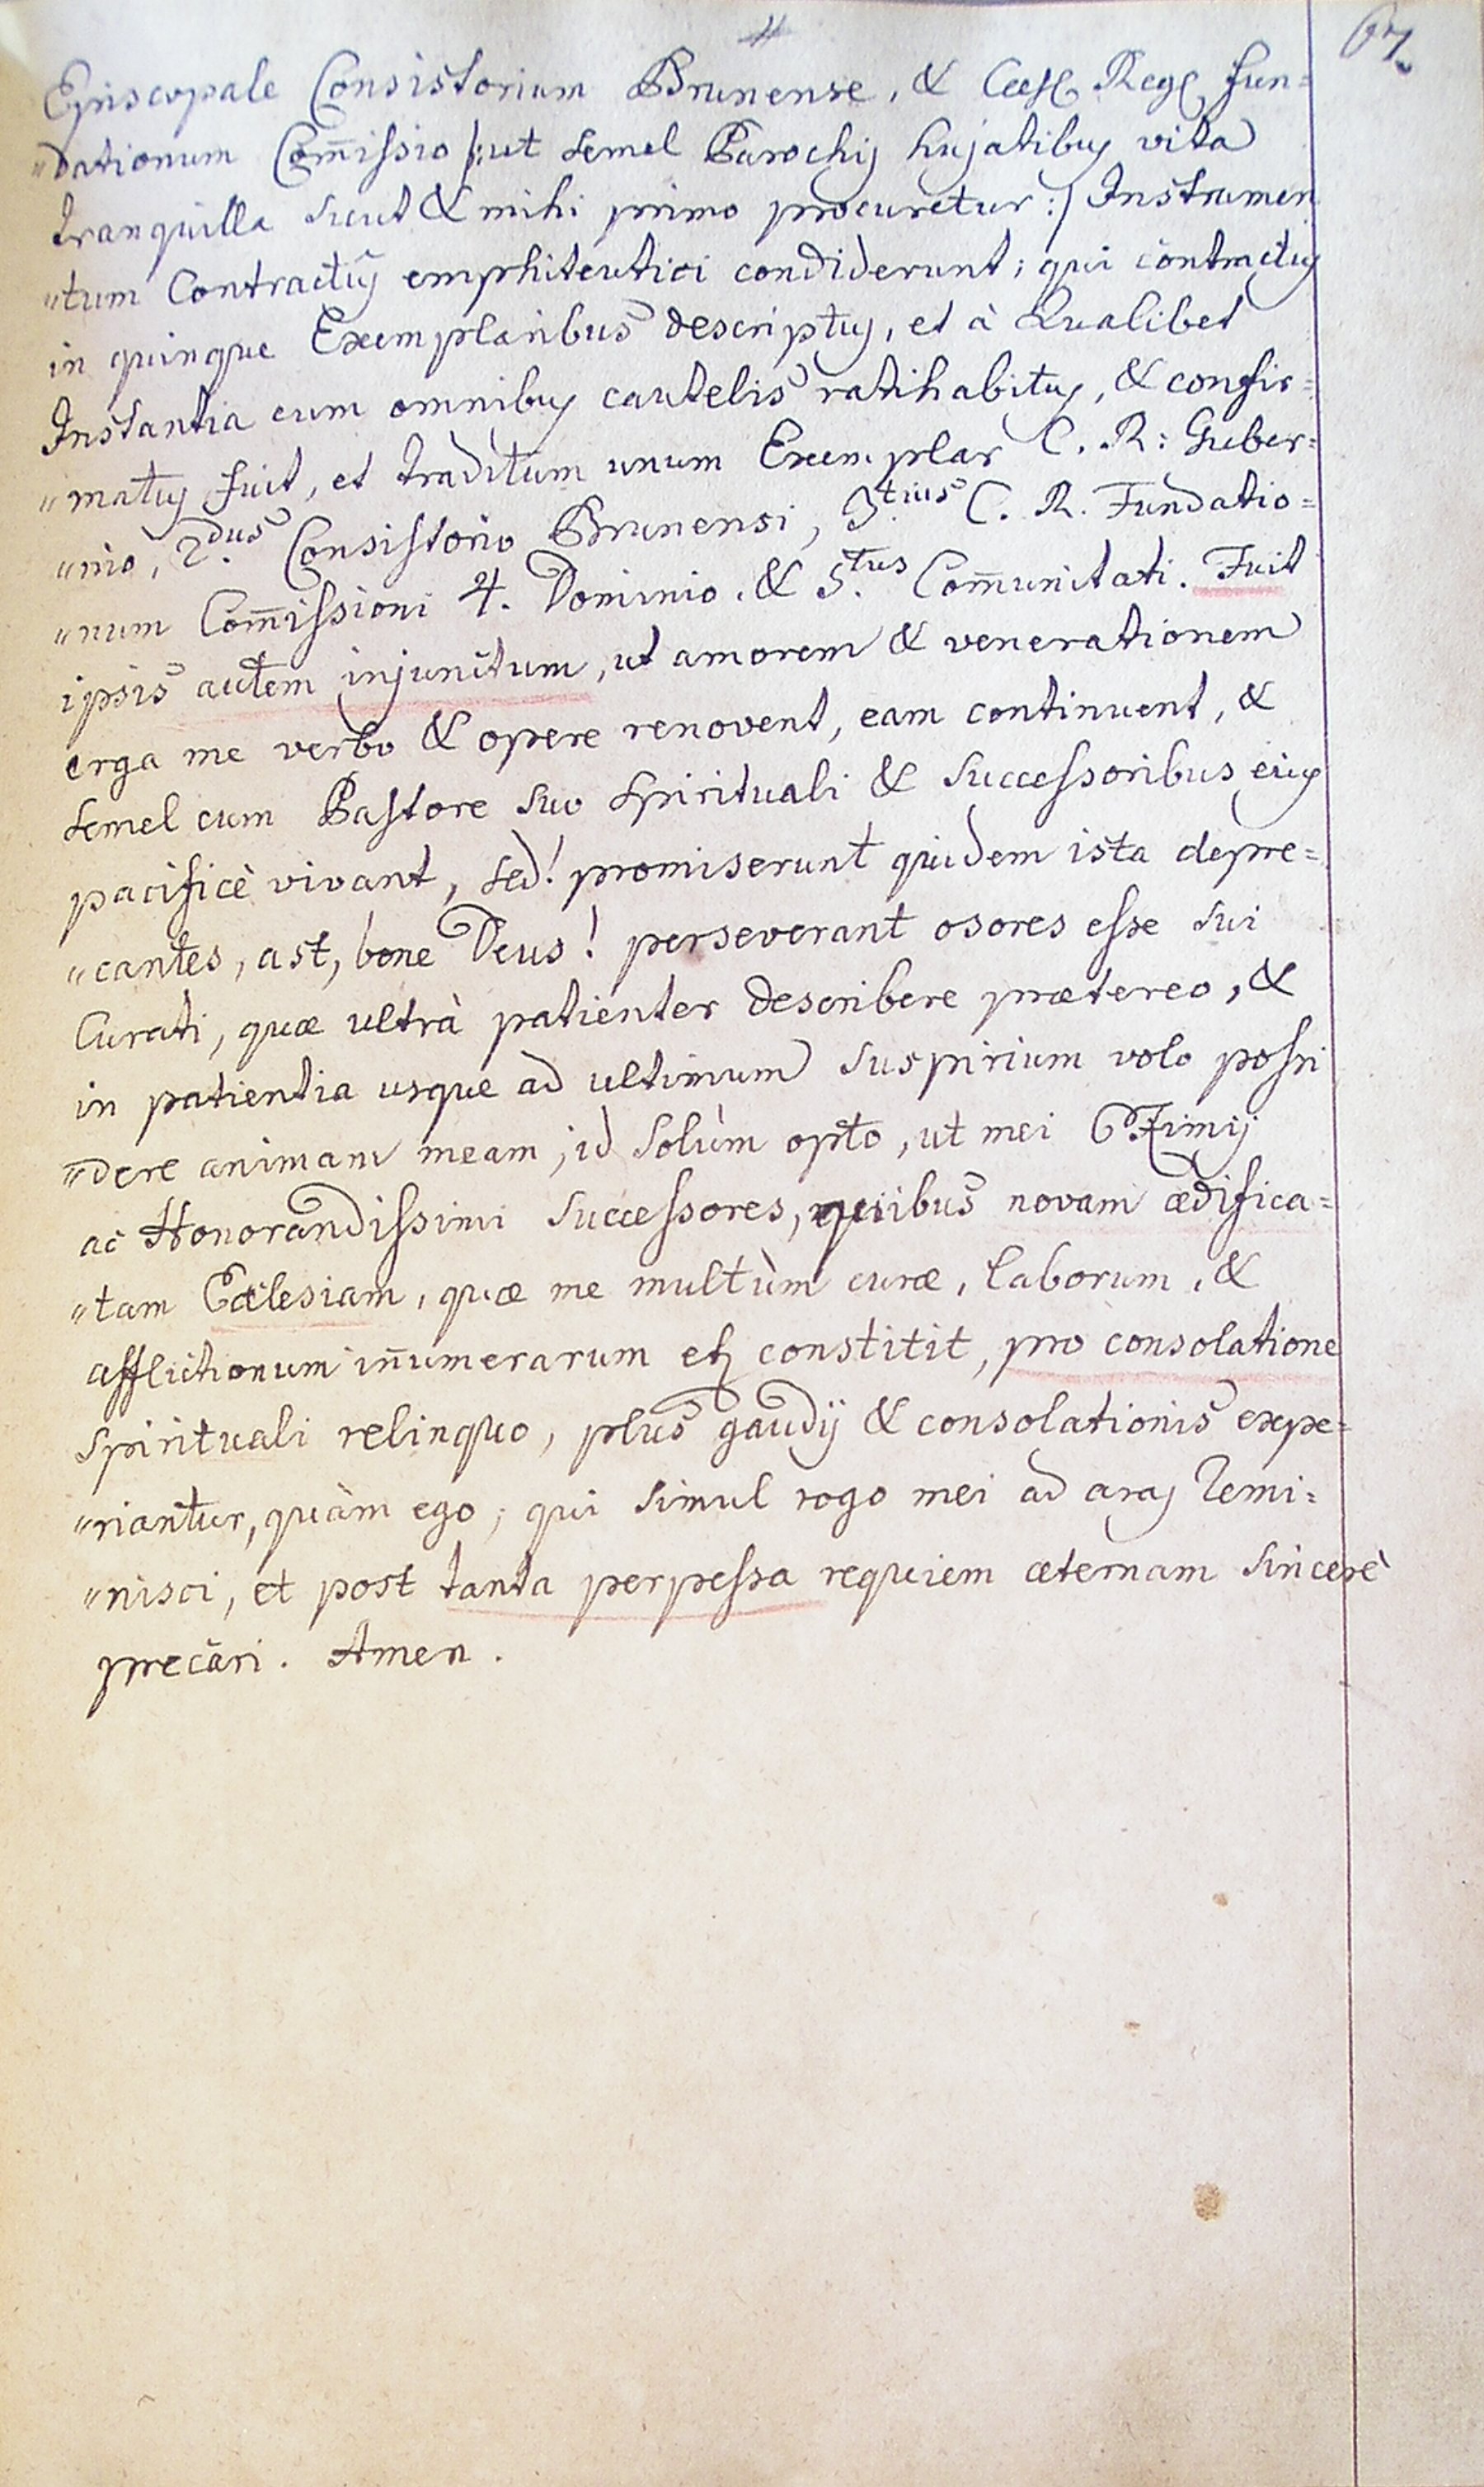 67.
Episcopale Consistorium Brunense, & Caes. Reg. fun=
"dationum Com̄issio /: ut semel Parochij hujatibus vita
tranquilla sicut & mihi primo procuretur :/ Instrumen
"tum Contractûs emphiteutici condiderunt; qui contractus
in quinque Exemplaribus descriptus, et à Qualibet
Instantia cum omnibus cautelis ratihabitus, & confir=
"matus fuit, et traditum unum Exemplar C. R: Guber=
"nio, 2.dus Consistorio Brunensi, 3.tius C. R. Fundatio=
"num Com̄issioni 4. Dominio. & 5.tus Com̄unitati. Fuit
ipsis autem injunctum, ut amorem & venerationem
erga me verbo & opere renovent, eam continuent, &
semel cum Pastore suo spirituali & successoribus ejus
pacificè vivant, sed! promiserunt quidem ista depre=
"cantes, ast, bone Deus! perseverant osores esse sui
Curati, quæ ultrà patienter describere prætereo, &
in patientia usque ad ultimum suspirium volo possi
"dere animam meam; id solùm opto, ut mei
ac Honorandissimi Successores, quibus novam ædifica=
"tam Ecclesiam, quæ me multùm curæ, laborum, &
afflictionum in̄umerarum etc constitit, pro consolatione
spirituali relinquo, plus gaudij & consolationis expe=
"riantur, quàm ego; qui simul rogo mei ad aras remi=
"nisci, et post tanta perpessa requiem æternam sincerè
precari. Amen.